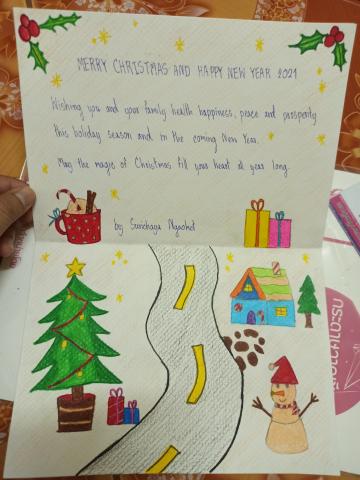 MERRY CHRISTMAS AND HAPPY NEW YEAR 2021
Wishing you and your family health happiness, peace and prosperity
this holiday season and in the coming New Year.
May the magic of Christmas fill your heart all year long.
by